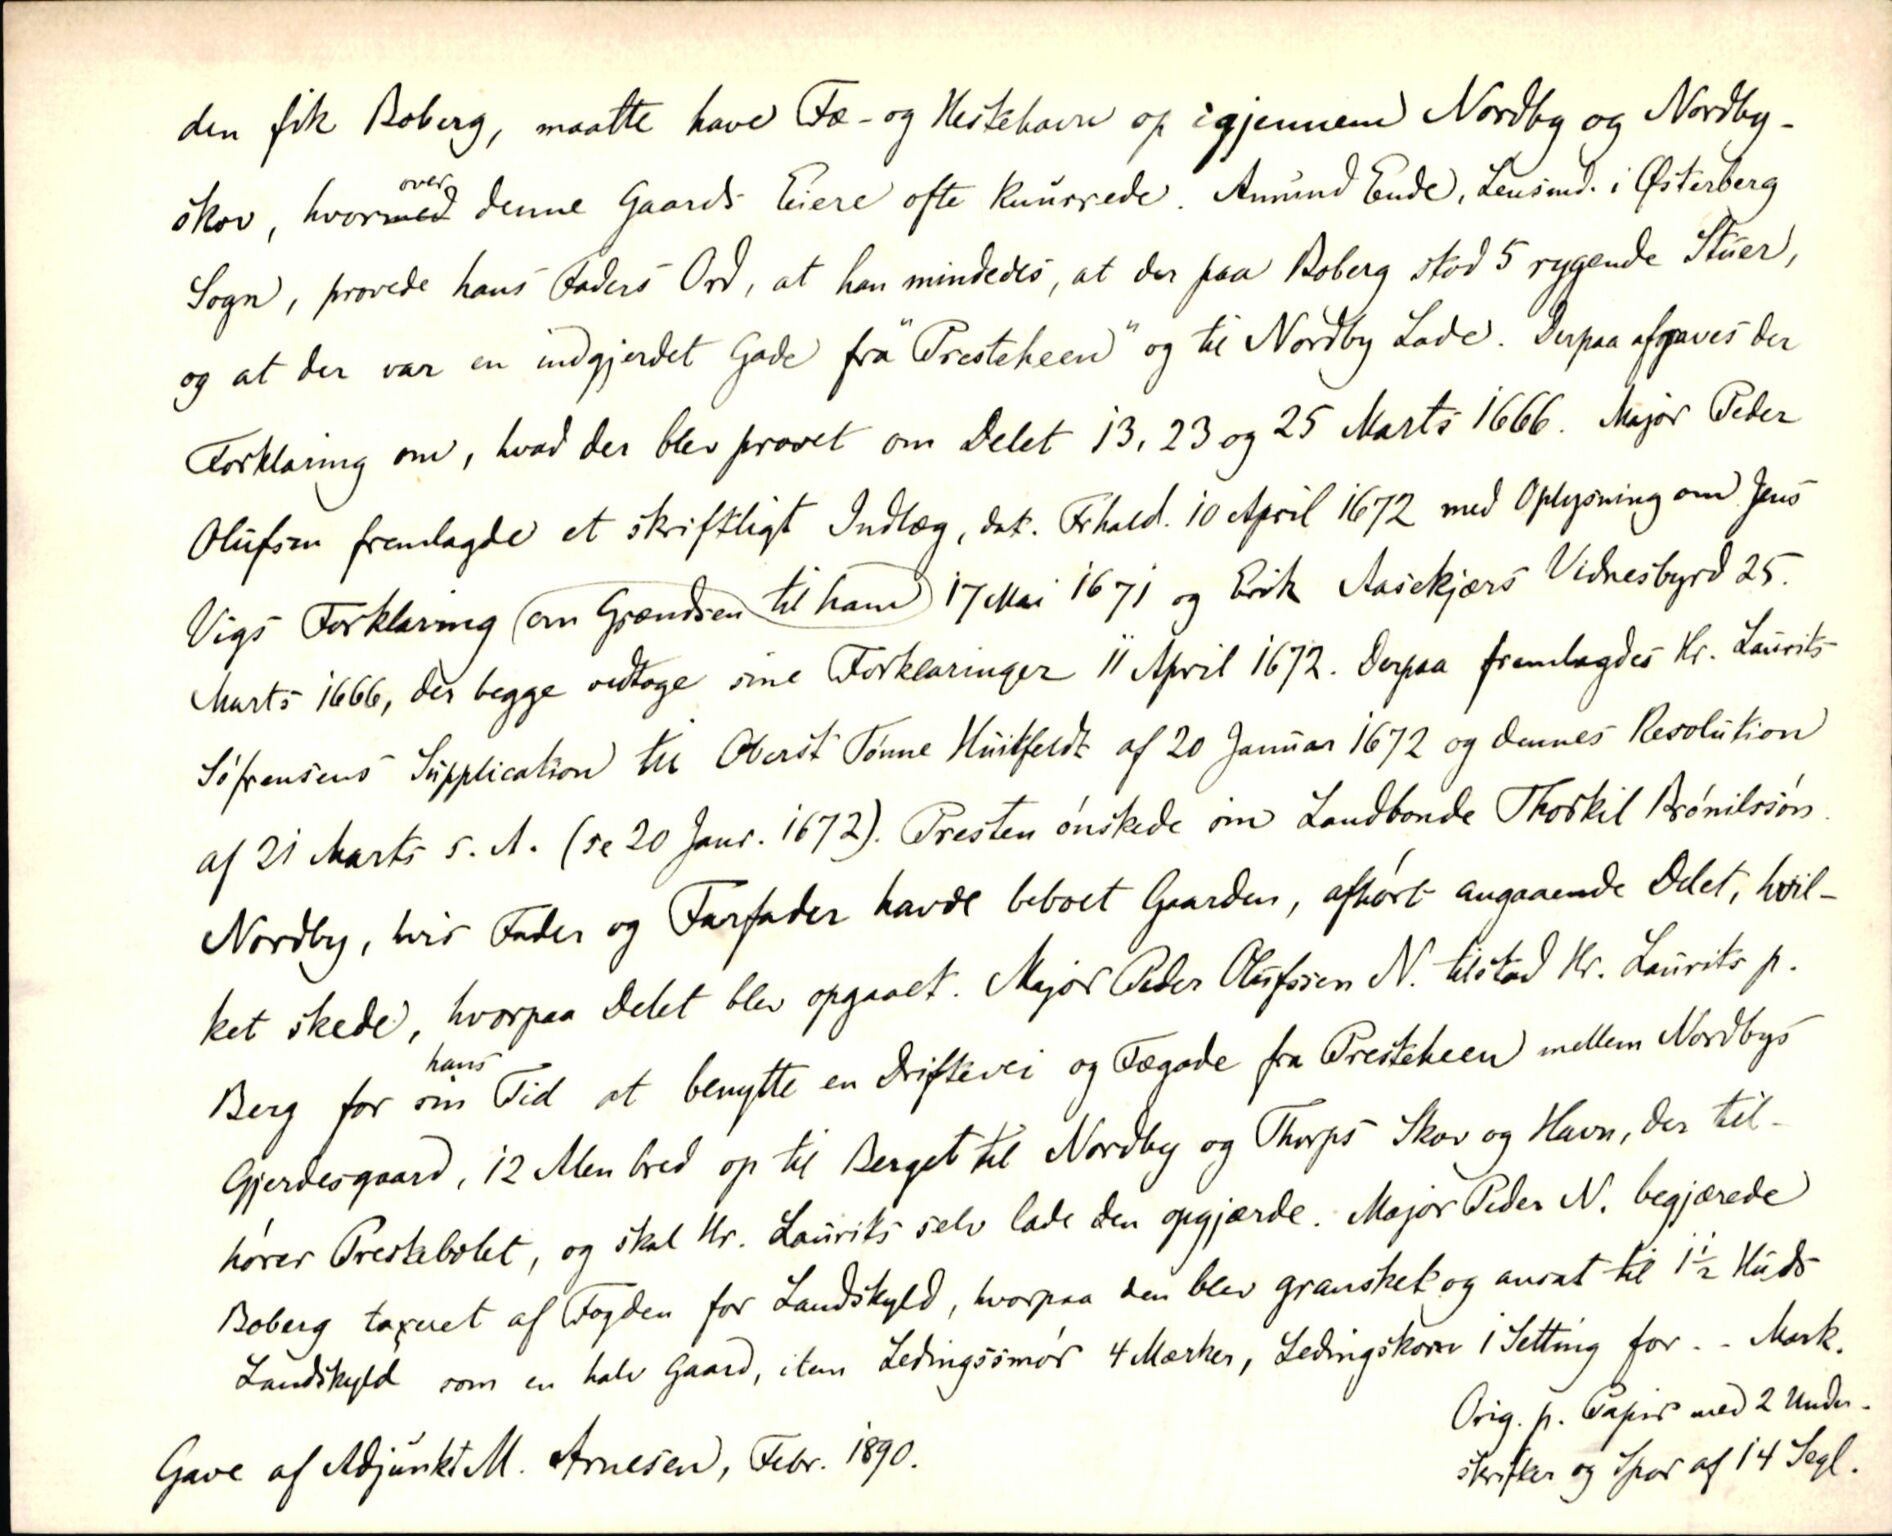 den fik Boberg, maatte have Fæ- og Hestehavn op igjennem Nordby og Nordby-
skov, hvorover denne Gaards Eiere ofte knurrede. Amund Ende, Lensmd. i Østerberg
Sogn, provede hans Faders Ord, at han mindedes, at der paa Boberg stod 5 rygende Stuer,
og at der var en indgjerdet Gade fra "Presteheen" og til Nordby Lade. Derpaa afgaves der
Forklaring om, hvad der blev provet om Delet 13, 23 og 25 Marts 1666. Major Peder
Olufsen fremlagde et skriftligt Indlæg, dat. Frhald. 10 April 1672 med Oplysning om Jens
Vigs Forklaring om Grændsen til ham 17 Mai 1671 og Erik Aasekjærs Vidnesbyrd 25.
Marts 1666, der begge vedtoge sine Forklaringer 11 April 1672. Derpaa fremlagdes Hr. Laurits
Söfrensens Supplication til Oberst Tönne Huitfeldt af 20 Januar 1672 og dennes Resolution
af 21 Marts s. A. (se 20 Janr. 1672). Presten önskede sin Landbonde Thorkil Brönilssön
Nordby, hvis Fader og Farfader havde beboet Gaarden, afhört angaaende Delet, hvil-
ket skede, hvorpaa Delet blev opgaaet. Major Peder Olufssen N. tilstod Hr. Laurits p.
Berg for hans Tid at benytte en Driftevei og Fægade fra Presteheen mellem Nordbys
Gjerdesgaard, 12 Alen bred op til Berget til Nordby og Thorps Skov og Havn, der til-
hörer Prestebolet, og skal Hr. Laurits selv lade den opgjærde. Major Peder N. begjærede
Boberg taxeret af Fogden for Landskyld, hvorpaa den blev gransket og ansat til 1½ Huds
Landskyld som en halv Gaard, item Ledingssmör 4 Mærker, Ledingskorn 1 Setting for . - Mark.
Orig. p. Papir med 2 Under-
skrifter og Spor af 14 Segl.
Gave af Adjunkt M. Arnesen, Febr. 1890.